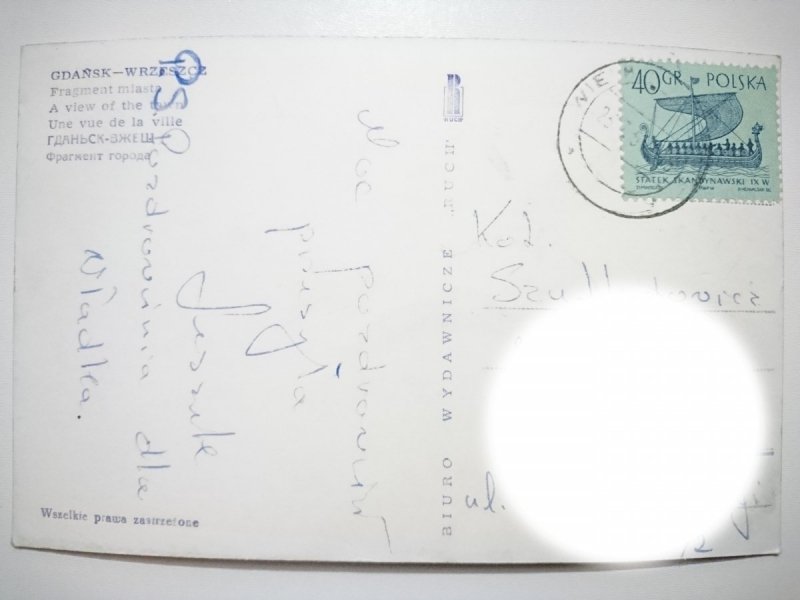 GDAŃSK—WRZESZCZ
Fragment miasta
A view of the town
Une vue de la ville
ГДАНЬСК-ВЖЕЩ
Фрагмент города
Moc pozdrowień
przesyła
PS. Pozdrowinia dla
Władka.
Wszelkie prawa zastrzeżone
RUCH
BIURO WYDAWNICZE „RUCH"
40 GR POLSKA
STATEK SKANDYNAWSKI IX W
Kol.
ul.